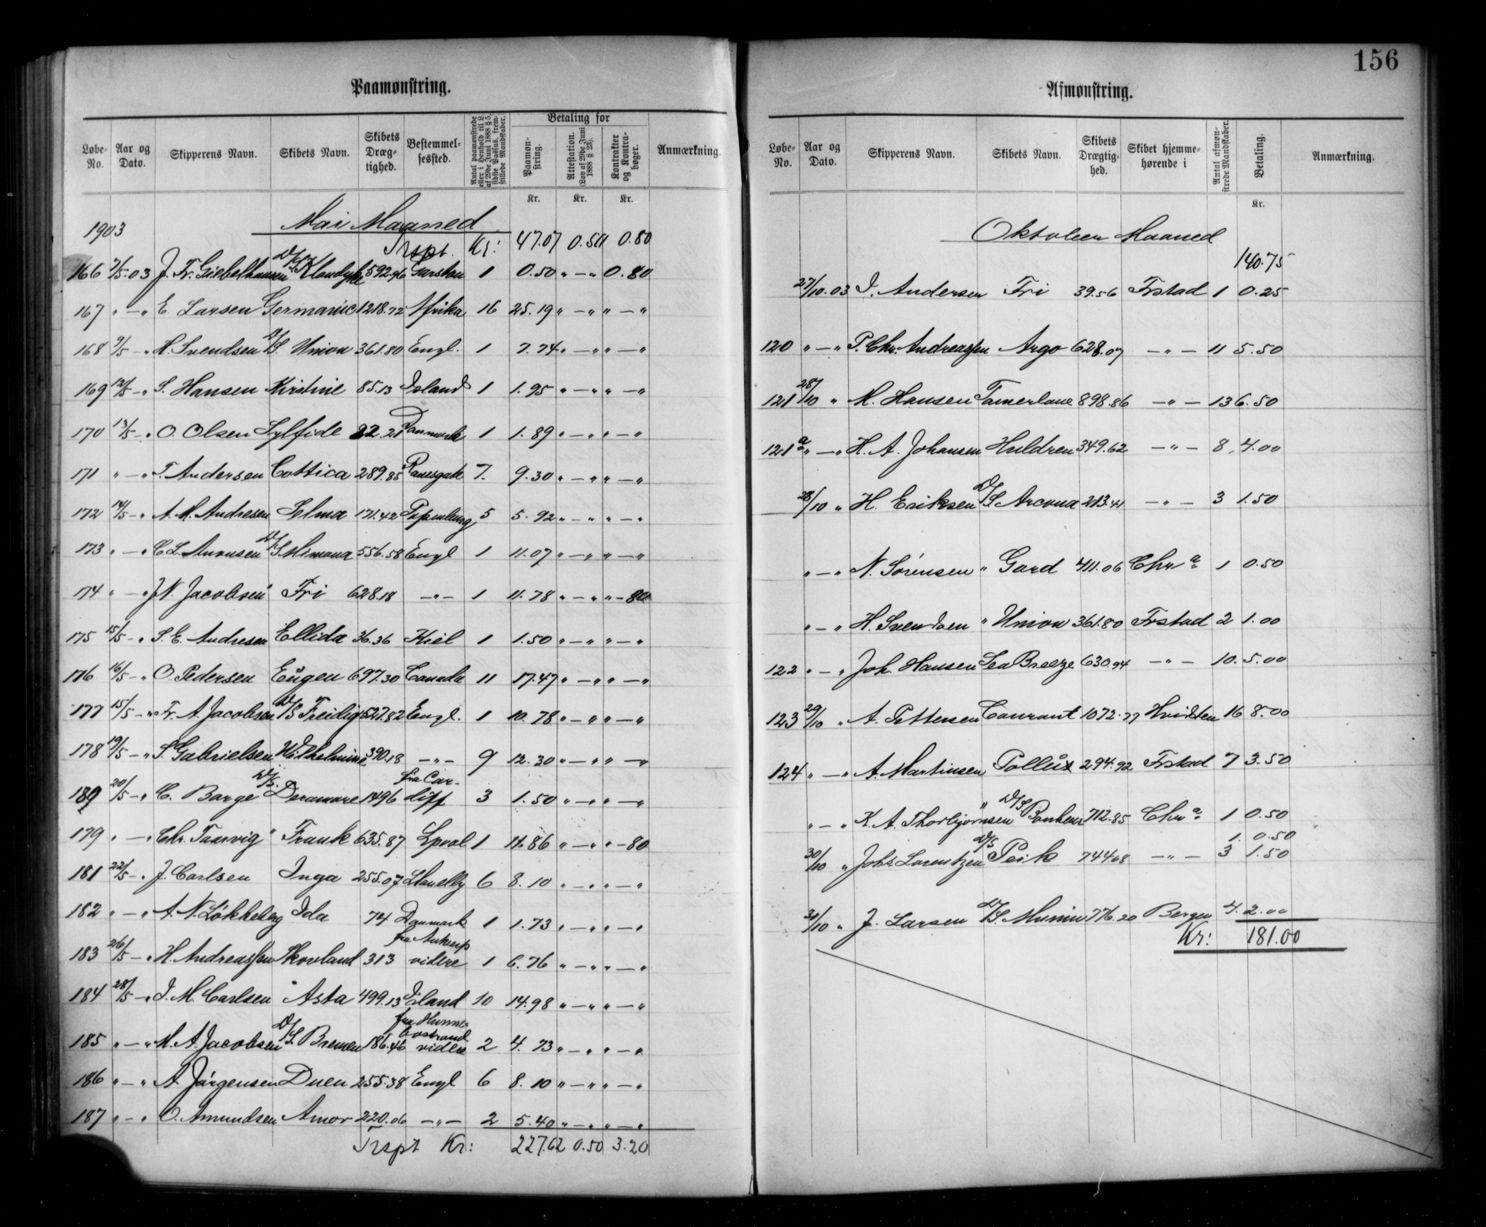 156
Paamønstring.
Løbe-No. Aar og Dato. Skipperens Navn. Skibets Navn. Skibets Dræg-tighed. Bestemmel-sessted. Betaling for Paamøn-string. Attestation. (Lov af 29de Juni 1888 § 29). Kontrakter og Kontra-bøger. Anmærkning.
Kr. Kr. Kr.
1903 Mai Maaned
Trspt. Kr: 47.07 0.50 0.80
166 7/5.03 J. Fr. Giebelhausen D/S Klondyke 592.46 1 0.50 " — " 0.80
167 " — " E. Larsen Germanic 1218.72 Afrika 16 25.19 " — " " — "
168 9/5 — " H. Svendsen D/S Union 361.80 Engl. 1 7.74 " — " " — "
169 12/5 — " S. Hansen Kirstine 85.13 Island 1 1.95 " — " " — "
170 13/5 — " O. Olsen Sylfide 82.21 Danmark 1 1.89 " — " " — "
171 " — " T. Andersen Cottica 289.85 Ramsgate 7. 9.30 " — " " — "
172 14/5 — " A. M. Andresen Selma 171.42 Papenburg 5 5.92 " — " " — "
173 " — " C. L. Aronsen D/S Mimona 556.58 Engl 1 11.07 " — " " — "
174 " — " J. N. Jacobsen " Fri 628.18 — " — 1 11.78 " — " " — 80
175 15/5 — " S. E. Andresen Ellida 36.36 Kiel 1 1.50 " — " " — "
176 16/5 — " O. Pedersen Eugen 697.30 Canada 11 17.47 " — " " — "
177 15/5 — " Fr. A. Jacobsen D/S Freidig 527.82 Engl. 1 10.78 " — " " — "
178 19/5 — " S. Gabrielsen Wilhelmine 390.18 — " — 9 12.30 " — " " — "
189 20/5 — " C. Barge D/S. Deramore 1496 fra Car-diff 3 1.50 " — " " — "
179 " — " Chr. Taarvig " Frank 635.87 Lpool 1 11.86 " — " " — 80
181 22/5 — " J. Carlsen Inga 255.07 Llanelly 6 8.10 " — " " — "
182 " — " A. N. Løkkeberg Ida 74 Danmark 1 1.73 " — " " — "
183 26/5 — " H. Andreassen Skovland 313 fra Antwerp videre 1 6.76 " — " " — "
184 28/5 — " J. M. Carlsen " Asta 499.13 Island 10 14.98 " — " " — "
185 " — " M. A. Jacobsen D/S Bremen 186.46 fra Hunnebostrand videre 2 4.73 " — " " — "
186 " — " A. Jørgensen Duen 255.38 Engl 6 8.10 " — " " — "
187 " — " O. Amundsen Amor 220.06 — " — 2 5.40 " — " " — "
Trspt Kr: 227.62 0.50 3.20
Afmønstring.
Løbe-No. Aar og Dato. Skipperens Navn. Skibets Navn. Skibets Drægtig-hed. Skibet hjemme-hørende i Antal afmøn-strede Mandskaber. Betaling. Anmærkning.
Kr.
Oktober Maaned
140.75
27/10.03 J. Andersen Fri 39.56 Frstad 1 0.25
120 " — " P. Chr. Andreassen Argo 628.07 — " — 11 5.50
121 28/10 " M. Hansen Tamerlane 898.86 — " — 13 6.50
121 a " — " H. A. Johansen Huldren 349.62 — " — 8 4.00
28/10 " H. Eriksen D/S Arcona 213.41 — " — 3 1.50
" — " N. Sørensen " Gard 411.06 Chra 1 0.50
" — " H. Svendsen " Union 361.80 Frstad 2 1.00
122 " — " Joh. Hansen Sea Breeze 630.94 — " — 10. 5.00
123 29/10 " A. Pettersen Courant 1072.77 Hvidsten 16 8.00
124 " — " A. Martinsen Pollux 294.92 Frstad 7 3.50
" — " K. A. Thorbjørnsen D/S 712.85 Chra 1 0.50
1 0.50
30/10 " Johs Lorentzen D/S Peik 744.08 — " — 3 1.50
31/10 " J. Larsen D/S Munin 776.20 Bergen 4. 2.00
Kr: 181.00